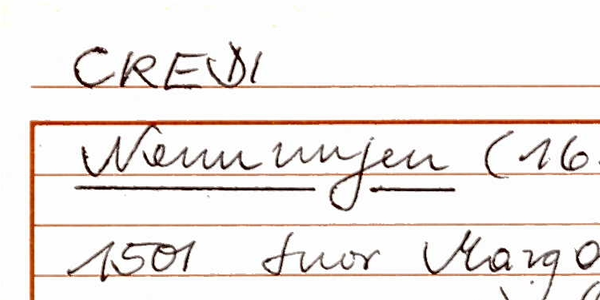 CREDI
Nennungen (16.
1501 suor Marga